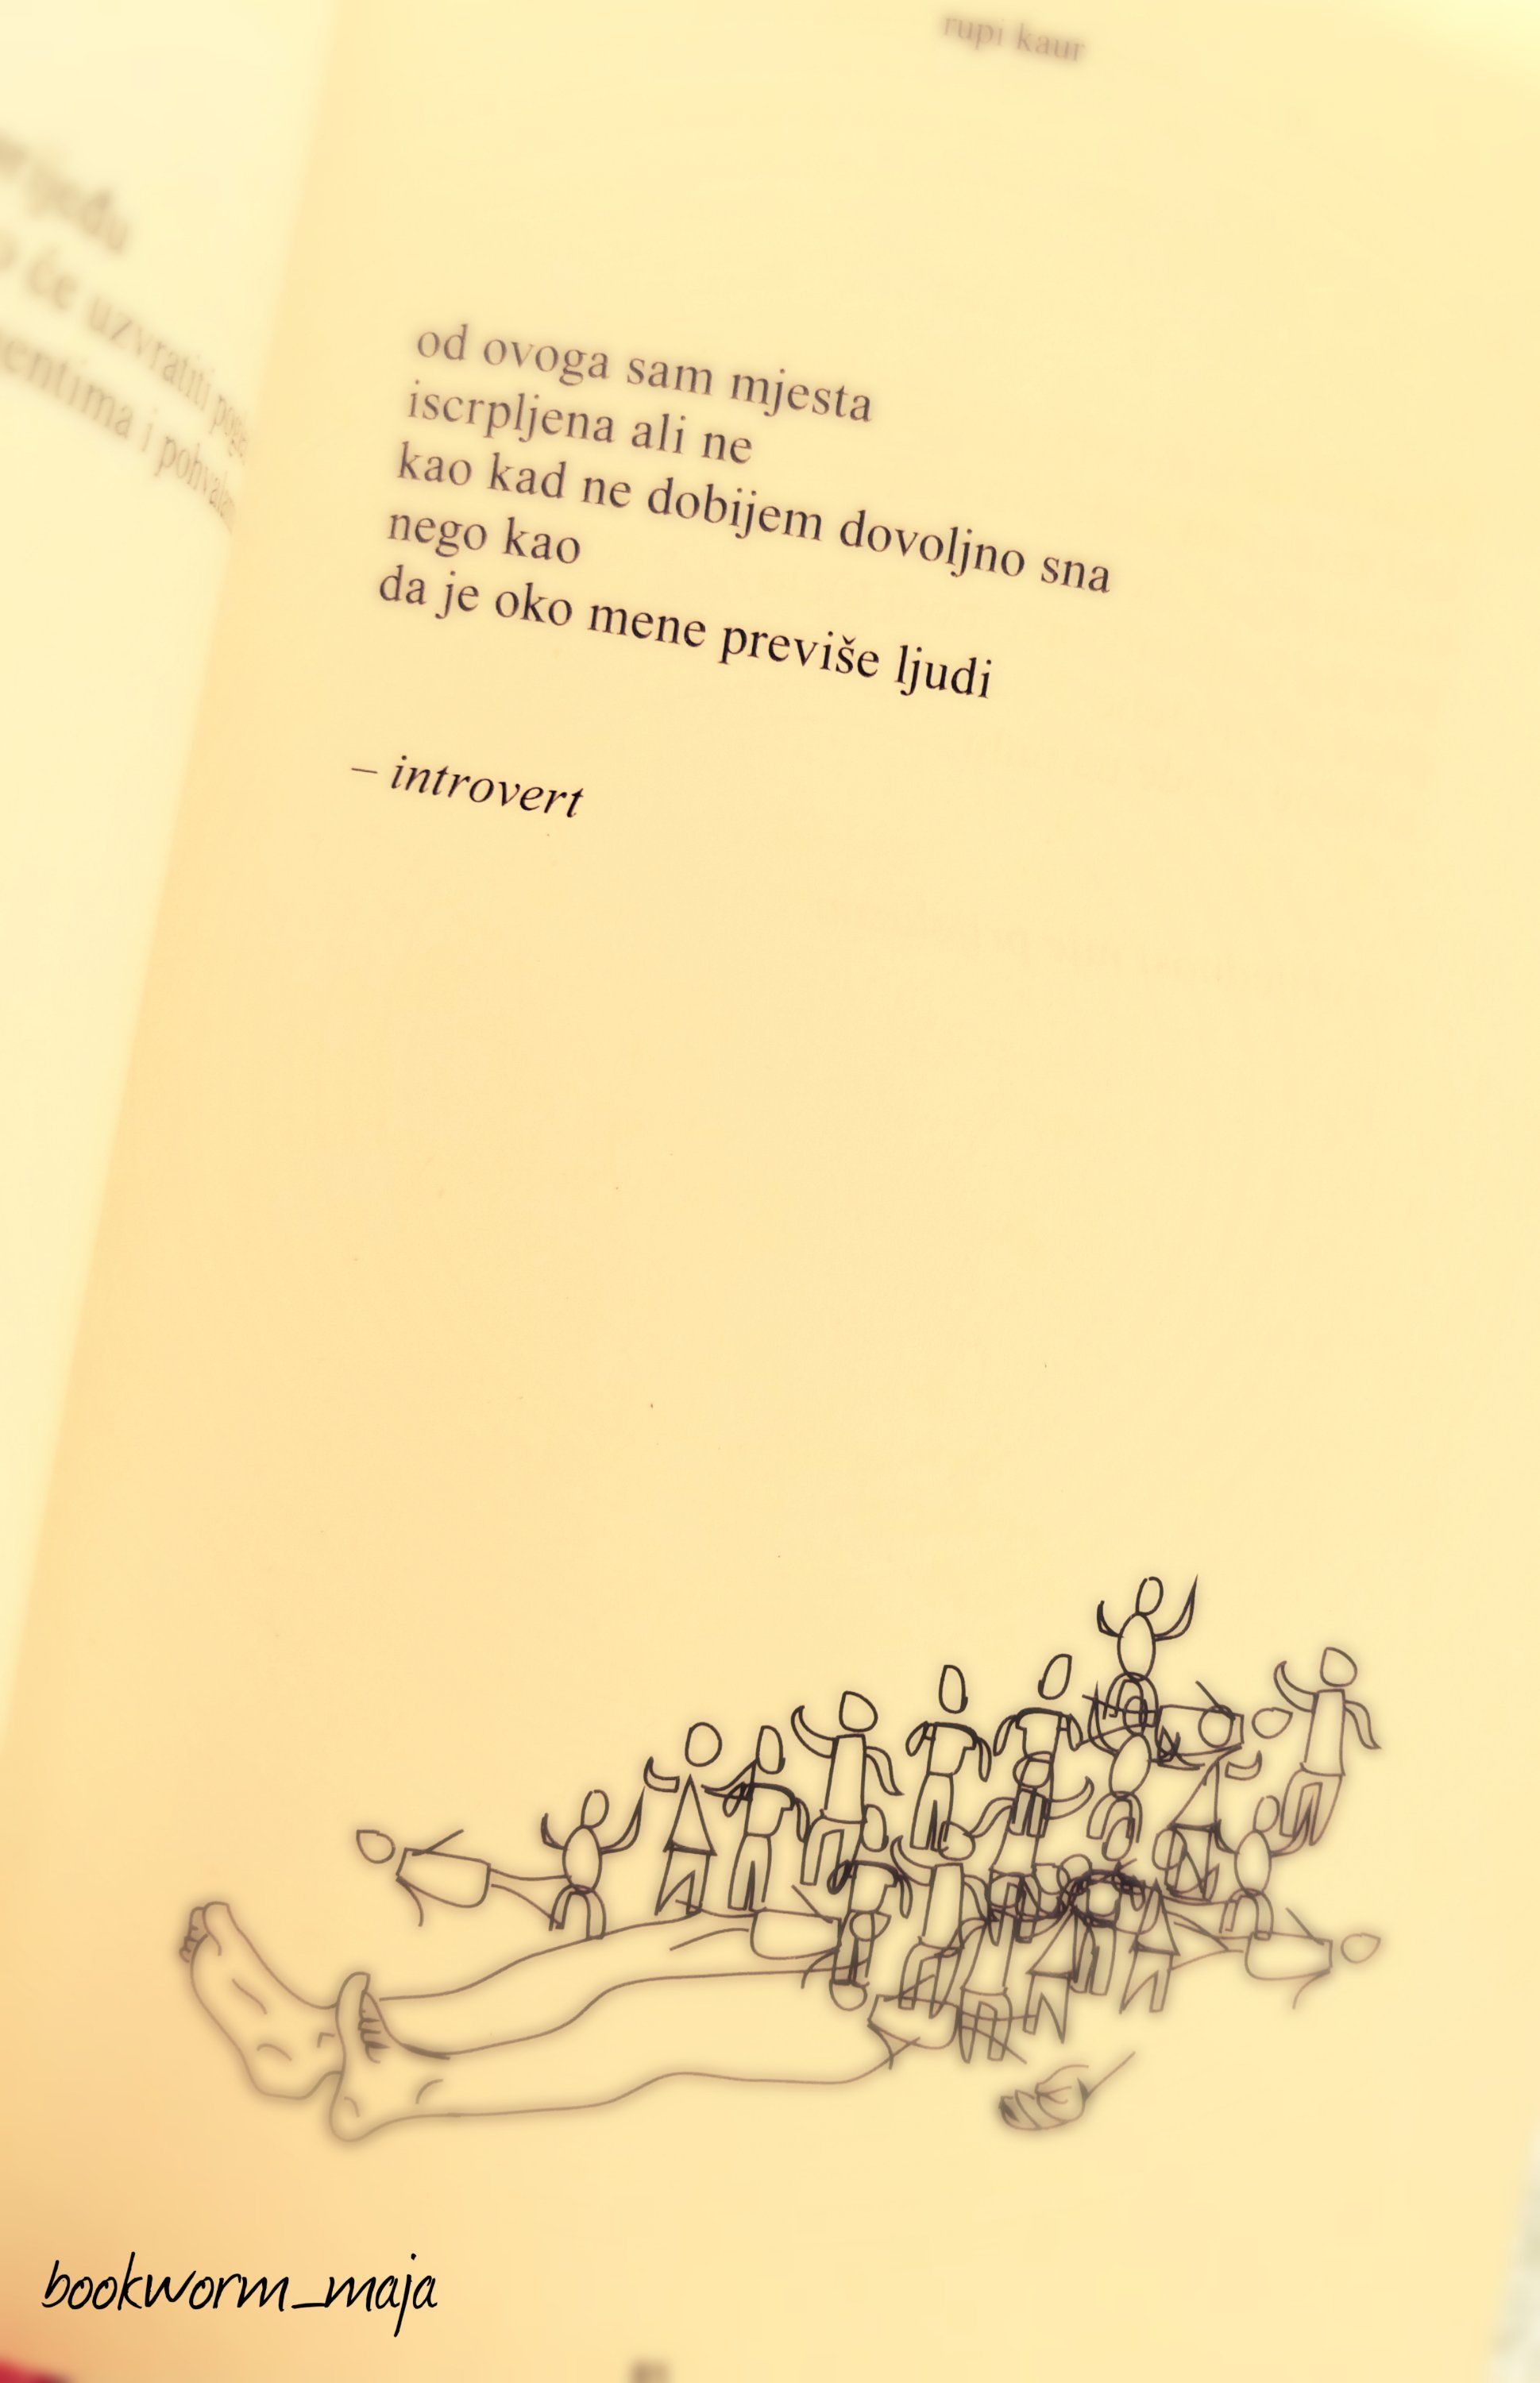 rupi kaur
će uzvratiti
i
od ovoga sam mjesta
iscrpljena ali ne
kao kad ne dobijem dovoljno sna
nego kao
da je oko mene previše ljudi
– introvert
bookworm_maja